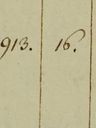 913. 16.